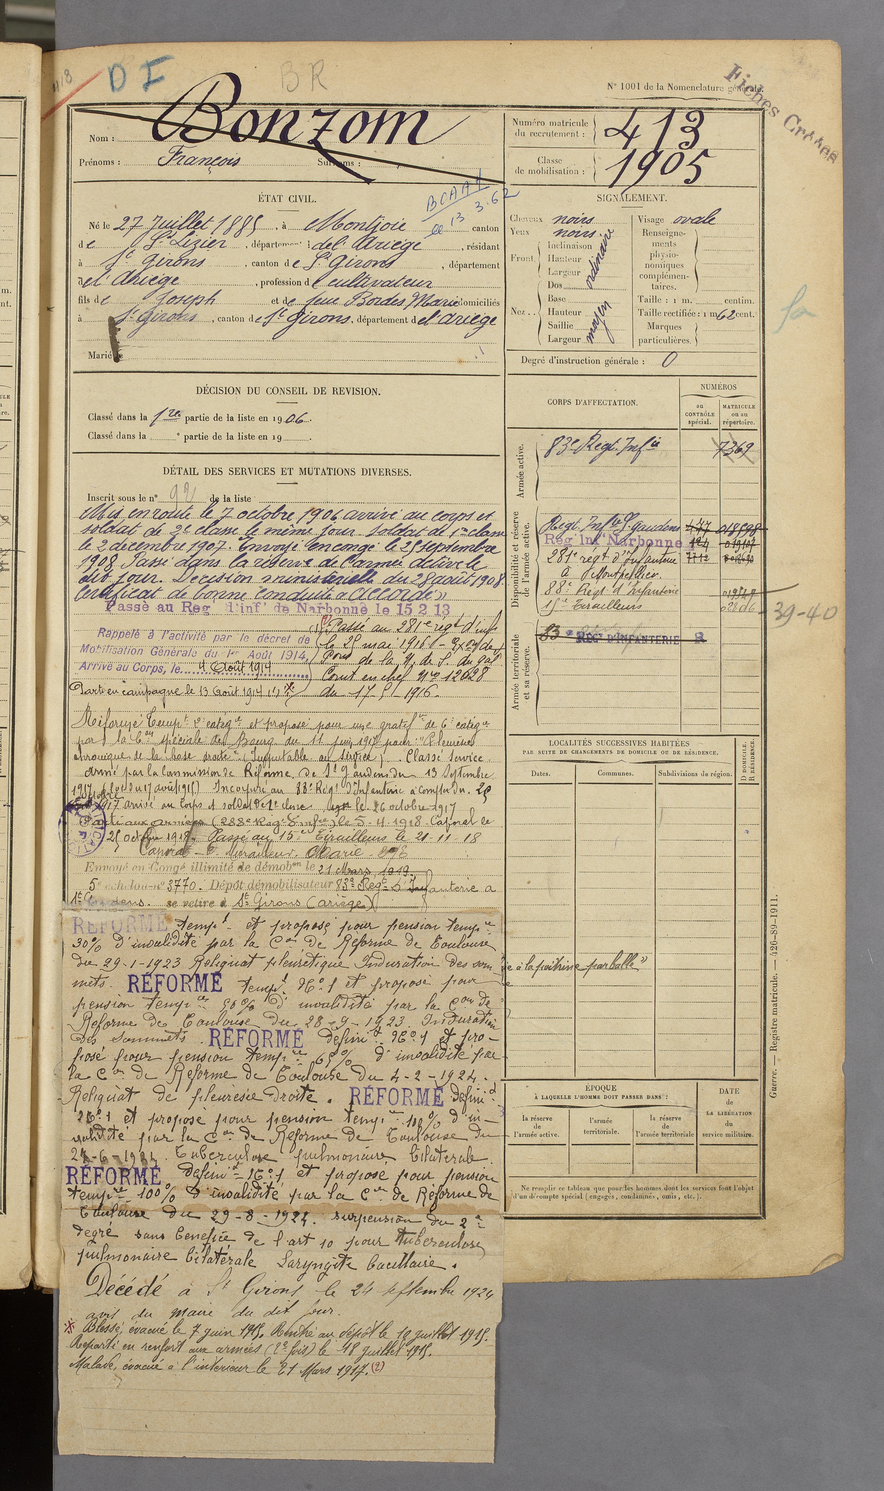 D I
BR
N° 1001 de la Nomenclature générale.
Fiches
Nom : Bonzom
Prénoms : François Surnoms :
Numéro matricule du recrutement : 413
Classe de mobilisation : 1905
ÉTAT CIVIL.
Né le 27 Juillet 1885, à Montjoie canton
de St Lizier, département de l'Ariège, résidant
à St Girons, canton de St Girons, département
de l'Ariège, profession de cultivateur
fils de Joseph et de feue Bordes, Marie domiciliés
à St Girons, canton de St Girons, département de l'Ariège
Marié
SIGNALEMENT.
Cheveux noirs
Yeux noirs
Front Inclinaison Hauteur Largeur ordinaire
Nez Dos Base Hauteur Saillie Largeur moyen
Visage ovale
Renseignements physionomiques complémentaires.
Taille : 1 m. centim.
Taille rectifiée : 1 m 62 cent.
Marques particulières.
Degré d'instruction générale : 0
DÉCISION DU CONSEIL DE REVISION.
Classé dans la 1re partie de la liste en 1906.
Classé dans la partie de la liste en 19
DÉTAIL DES SERVICES ET MUTATIONS DIVERSES.
Inscrit sous le n° 92 de la liste
Mis en route le 7 octobre 1906 arrivé au corps et
soldat de 2e classe le même jour. Soldat de 1re classe
le 2 décembre 1907. Envoyé en congé le 25 septembre
1908. Passé dans la réserve de l'armée active le
dit jour. Décision ministérielle du 28 août 1908
Certificat de bonne conduite "Accordé"
Passé au Reg d'inf de Narbonne le 15 2 13
Rappelé à l'activité par le décret de
Mobilisation Générale du 1er Août 1914,
Arrivé au Corps, le 4 Août 1914
Parti en campagne le 13 Août 1914
Passé au 281e régt d'inf
le 25 mai 1916
de la
Com en chef No 12028
du 17-5-1916.
Réformé Tempre 2e catégie et proposé pour une gratifon de 6e catégie
par la Con spéciale des Bourg du 11 juin 1917 pour : "Pleurésie
chronique de la base droite" (Imputable au service). Classé service
armé par la Commission de Réforme de St Gaudens du 13 Septembre
1917. Incorporé au 88e Régt d'Infanterie à compter du 25
1917 arrivé au corps et soldat de 1e classe le 26 octobre 1917
Parti aux armées (288e Rég. d'Inf.) le 5-4-1918. Caporal le
25 octobre 1918. Passé au 15e Tirailleurs le 21-11-18
Caporal
Envoyé en Congé illimité de démobon le 21 Mars 1919.
5e échelon n° 3770. Dépôt démobilisateur 83e Régt d'Infanterie à
St Gaudens. se retire à St Girons (Ariège)
RÉFORMÉ tempt et proposé pour pension tempre
30% d'invalidité par la Con de Réforme de Toulouse
du 29-1-1923 Reliquat pleurétique Induration des som
mets. RÉFORMÉ tempt No 1 et proposé pour
pension tempre 50% d'invalidité par la Con de
Réforme de Toulouse du 28-9-1923. Induration
des sommets. RÉFORMÉ définit No 1 et pro-
posé pour pension tempre 65% d'invalidité par
la Con de Réforme de Toulouse du 4-2-1924.
Reliquat de pleurésie droite. RÉFORMÉ définit
No 1 et proposé pour pension tempre 100% d'in-
validité par la Con de Réforme de Toulouse du
24-6-1924. Tuberculose pulmonaire bilatérale.
RÉFORMÉ définit No 1 et proposé pour pension
tempre 100% d'invalidité par la Con de Réforme de
Toulouse du 29-8-1924. surpension du 2e
degré sans bénéfice de l'art 10 pour tuberculose
pulmonaire bilatérale Laryngite bacillaire.
Décédé à St Girons le 24 septembre 1924
avis du maire du dit jour.
Blessé, évacué le 7 juin 1915. Rentré au dépôt le 19 juillet 1915.
Reparti en renfort aux armées (2e fois) le 18 juillet 1915.
Malade, évacué à l'intérieur le 21 Mars 1917. (2)
à la poitrine par balle"
CORPS D'AFFECTATION.
NUMÉROS
au CONTRÔLE spécial.
MATRICULE ou au répertoire.
Armée active.
83e Régt. Infie 7369
Disponibilité et réserve de l'armée active.
Régt Infie St Gaudens 477
Rég Inf Narbonne
281e régt d'Infanterie
à Montpellier
88e Régt d'Infanterie
15e Tirailleurs
39-40
Armée territoriale et sa réserve.
83 RÉGT D'INFANTERIE
LOCALITÉS SUCCESSIVES HABITÉES
PAR SUITE DE CHANGEMENTS DE DOMICILE OU DE RÉSIDENCE.
Dates. Communes. Subdivisions de région.
D DOMICILE. R RÉSIDENCE.
ÉPOQUE
À LAQUELLE L'HOMME DOIT PASSER DANS :
la réserve de l'armée active.
l'armée territoriale.
la réserve de l'armée territoriale
DATE de LA LIBÉRATION du service militaire.
Ne remplir ce tableau que pour les hommes dont les services font l'objet
d'un décompte spécial (engagés, condamnés, omis, etc.).
Guerre. — Registre matricule. — 426-89-1911.